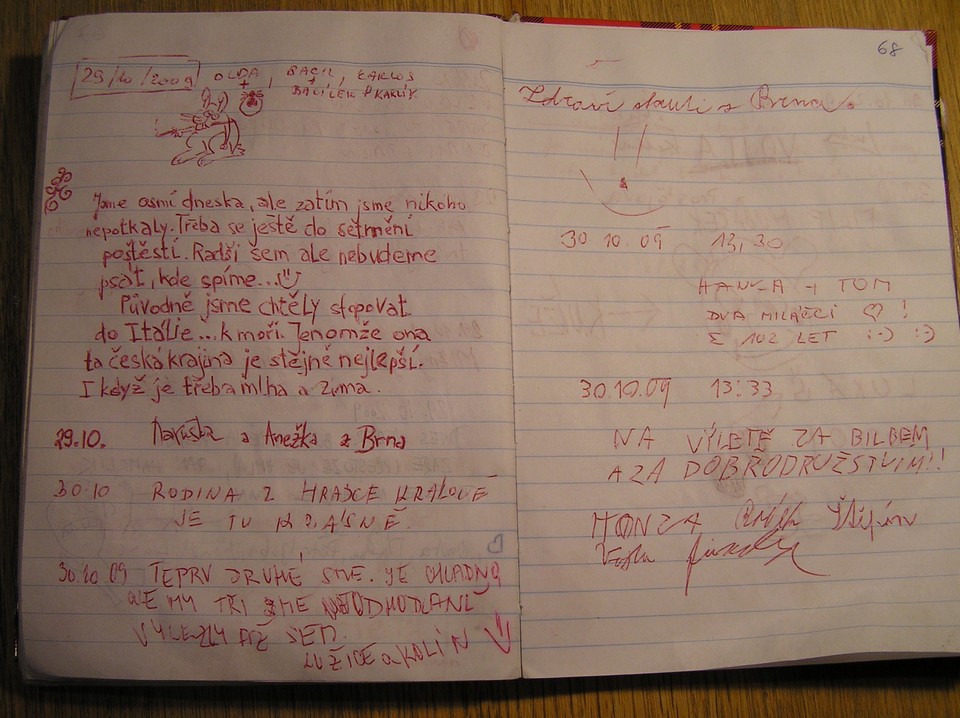 29/10/2009 OLDA, BACIL, KARLOS
+ +
BACÍLEK KARLÍK
Jsme osmí dneska, ale zatím jsme nikoho
nepotkaly. Třeba se ještě do setmění
poštěstí. Radši sem ale nebudeme
psát, kde spíme...
Původně jsme chtěly stopovat
do Itálie... k moři. Jenomže ona
ta česká krajina je stejně nejlepší.
I když je třeba mlha a zima.
29.10. Maruška a Anežka z Brna
30.10 RODINA Z HRADCE KRÁLOVÉ
JE TU KRÁSNĚ.
30.10 09 TEPRV DRUHÉ, SME. JE CHLADNO
ALE MY TŘI SME ODHODLANÍ
VYLEZLY AŽ SEM.
LUŽICE a KOLÍN
68
Zdraví skauti z Brna.
30 10. 09 13,30
HANKA + TOM
DVA MILÁČCI ♡ !
Σ 102 LET :-) :-)
30.10.09 13:33
NA VÝLETĚ ZA BILBEM
A ZA DOBRODRUŽSTVÍM!!
HONZA Štěpán